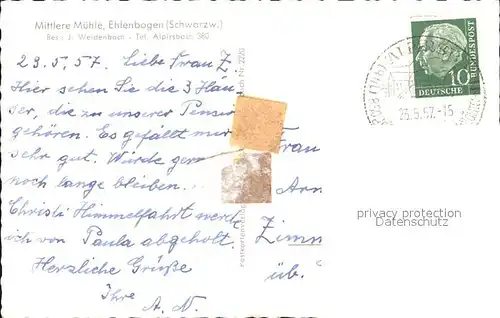 Mittlere Mühle, Ehlenbogen (Schwarzw.)
Bes.: J. Weidenbach - Tel. Alpirsbach 380
23.5.57. Liebe Frau Z
Hier sehen Sie die 3 Häu=
ser, die zu unserer Pension
gehören. Es gefällt mir
sehr gut. Würde gern
noch lange bleiben...
Christi Himmelfahrt werde
ich von Paula abgeholt.
Herzliche Grüße
Ihre A. N.
Frau
Zimm
üb.
10
DEUTSCHE
BUNDESPOST
23.5.57.-15
privacy protection
Datenschutz